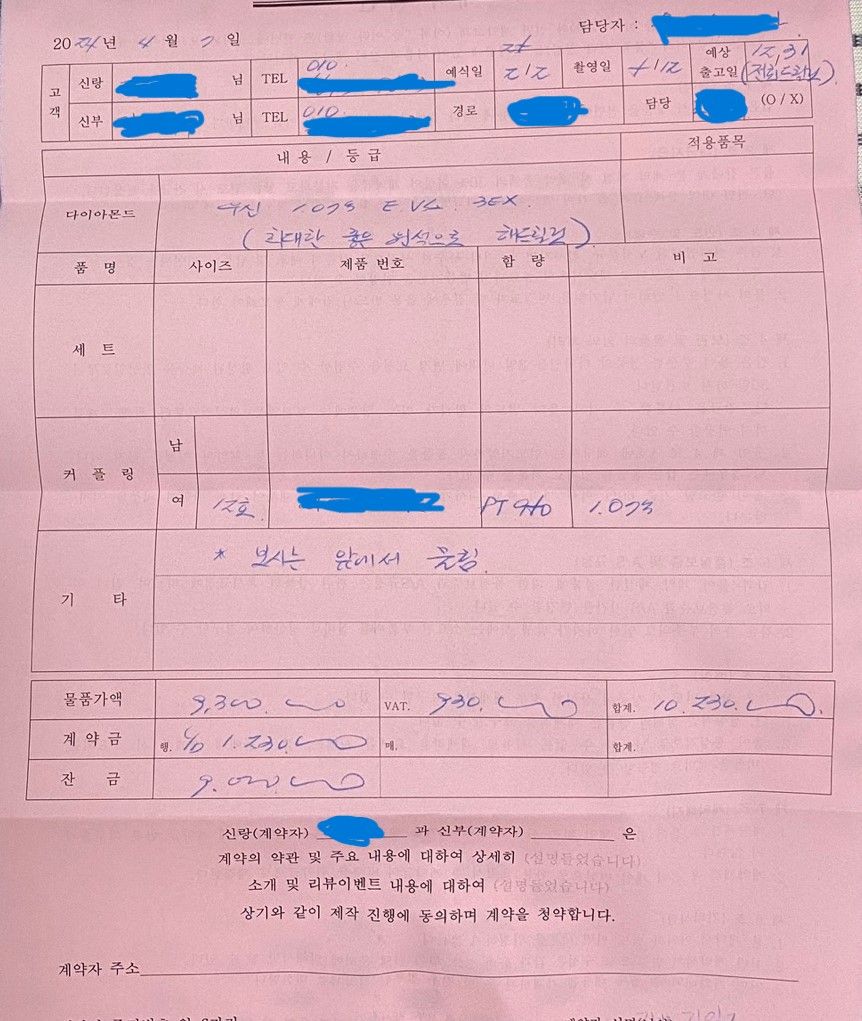 담당자 :
2024년 4월 7일
고객 신랑 님 TEL 010. 예식일 24 2/2 촬영일 7/12 예상 출고일 12,31
신부 님 TEL 010 경로 담당 (O / X)
내용 / 등급 적용품목
다이아몬드 우신 1.073 E. VS. 3EX.
(최대한 좋은 원석으로 해드릴것)
품 명 사이즈 제품 번호 함 량 비 고
세 트
남
커 플 링
여 12호 PT 1.073
* 보시는 앞에서 물림.
기 타
물품가액 9,300. VAT. 930. 합계. 10.230.
계 약 금 행. 1.230. 매. 합계.
잔 금 9.000.
신랑(계약자) 과 신부(계약자) 은
계약의 약관 및 주요 내용에 대하여 상세히 (설명들었습니다)
소개 및 리뷰이벤트 내용에 대하여 (설명들었습니다)
상기와 같이 제작 진행에 동의하며 계약을 청약합니다.
계약자 주소